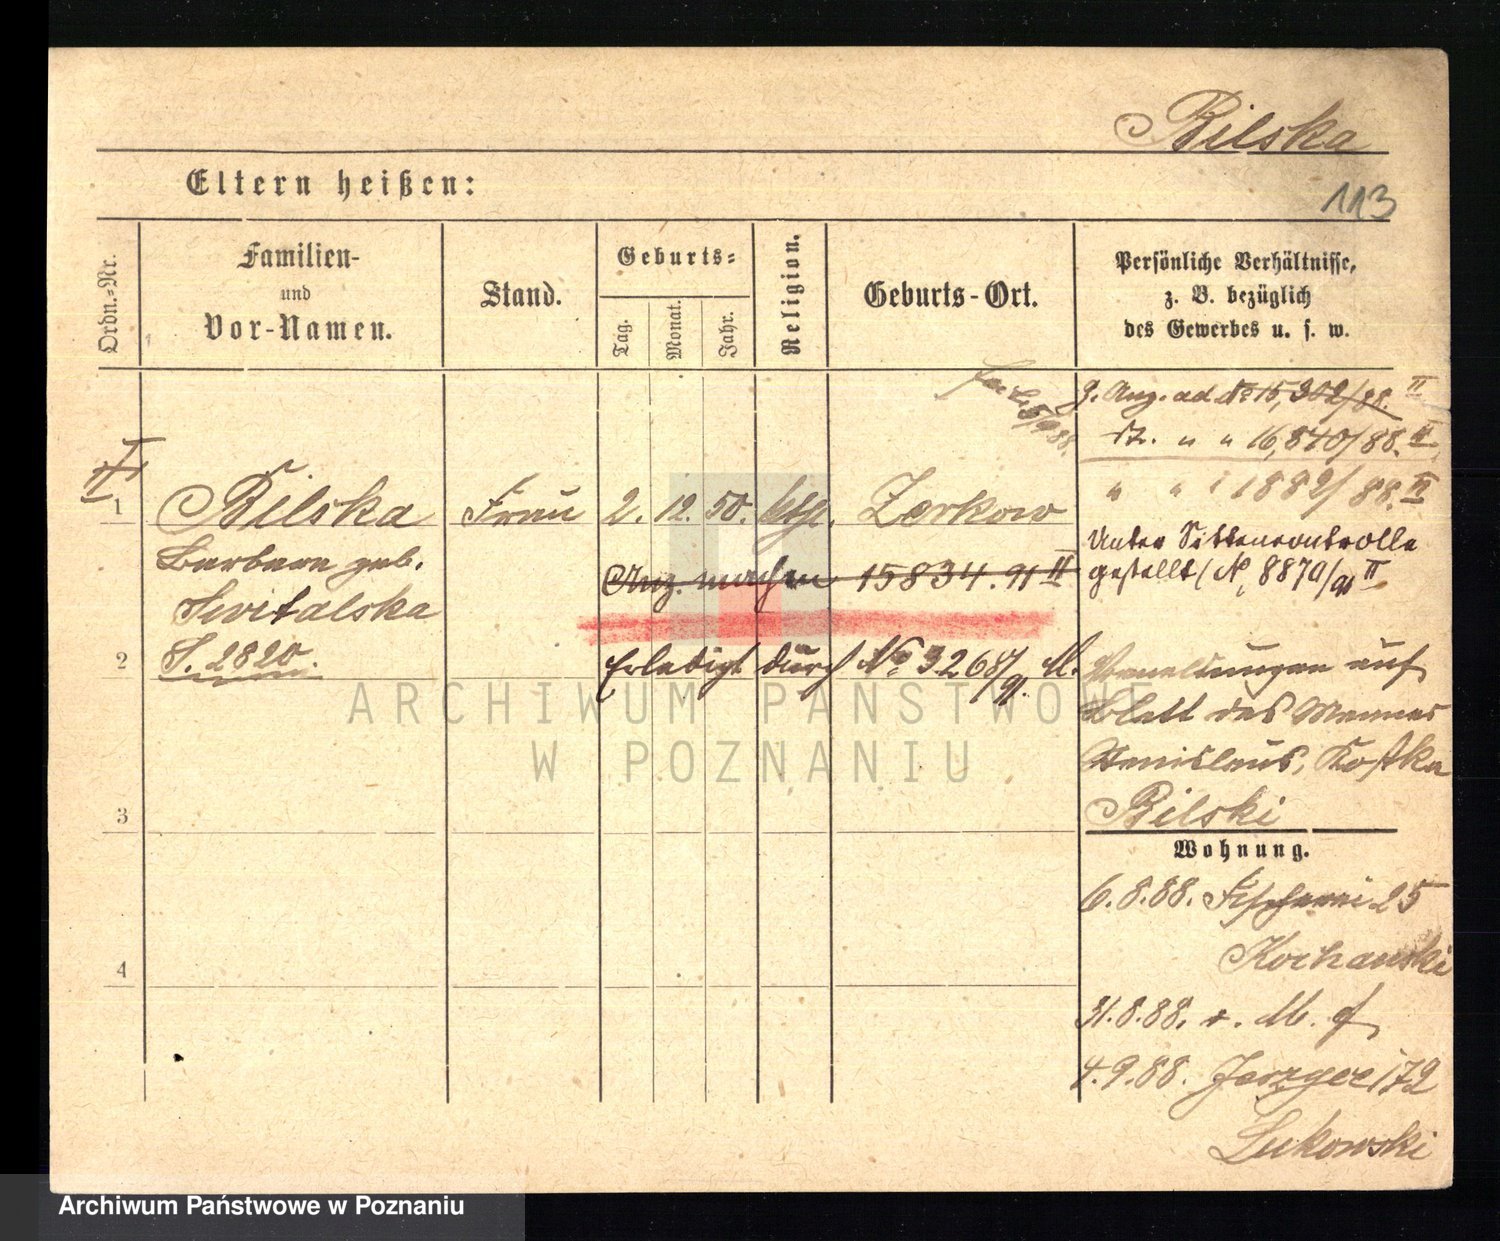 Bilska
Eltern heißen:
113
Ordn.-Nr.
Familien-
und
Vor-Namen.
Stand.
Geburts-
Tag.
Monat.
Jahr.
Religion.
Geburts-Ort.
Persönliche Verhältnisse,
z. B. bezüglich
des Gewerbes u. s. w.
5/9 88.
g. Anz. ad No 15,302/88. II
dt. " " 16,840/88. II
" " " 1882/88. II
II
1
Bilska
Frau
2. 12. 50. kth. Zerkow
Barbara geb.
Switalska
S. 2820.
Anz. machen 15834. 91 II
Erledigt durch No 3268/91. M.
Unter Sittencontrolle
gestellt (N. 8870/91 II
2
Vermeldungen auf
Blatt des Mannes
Stanislaus, Kostka
Bilski
3
Wohnung.
6.8.88. Fischerei 25
Kochanski
4
31.8.88. v. M. f
4.9.88. Jerzyce 172
Lukowski
ARCHIWUM PAŃSTWOWE
W POZNANIU
Archiwum Państwowe w Poznaniu